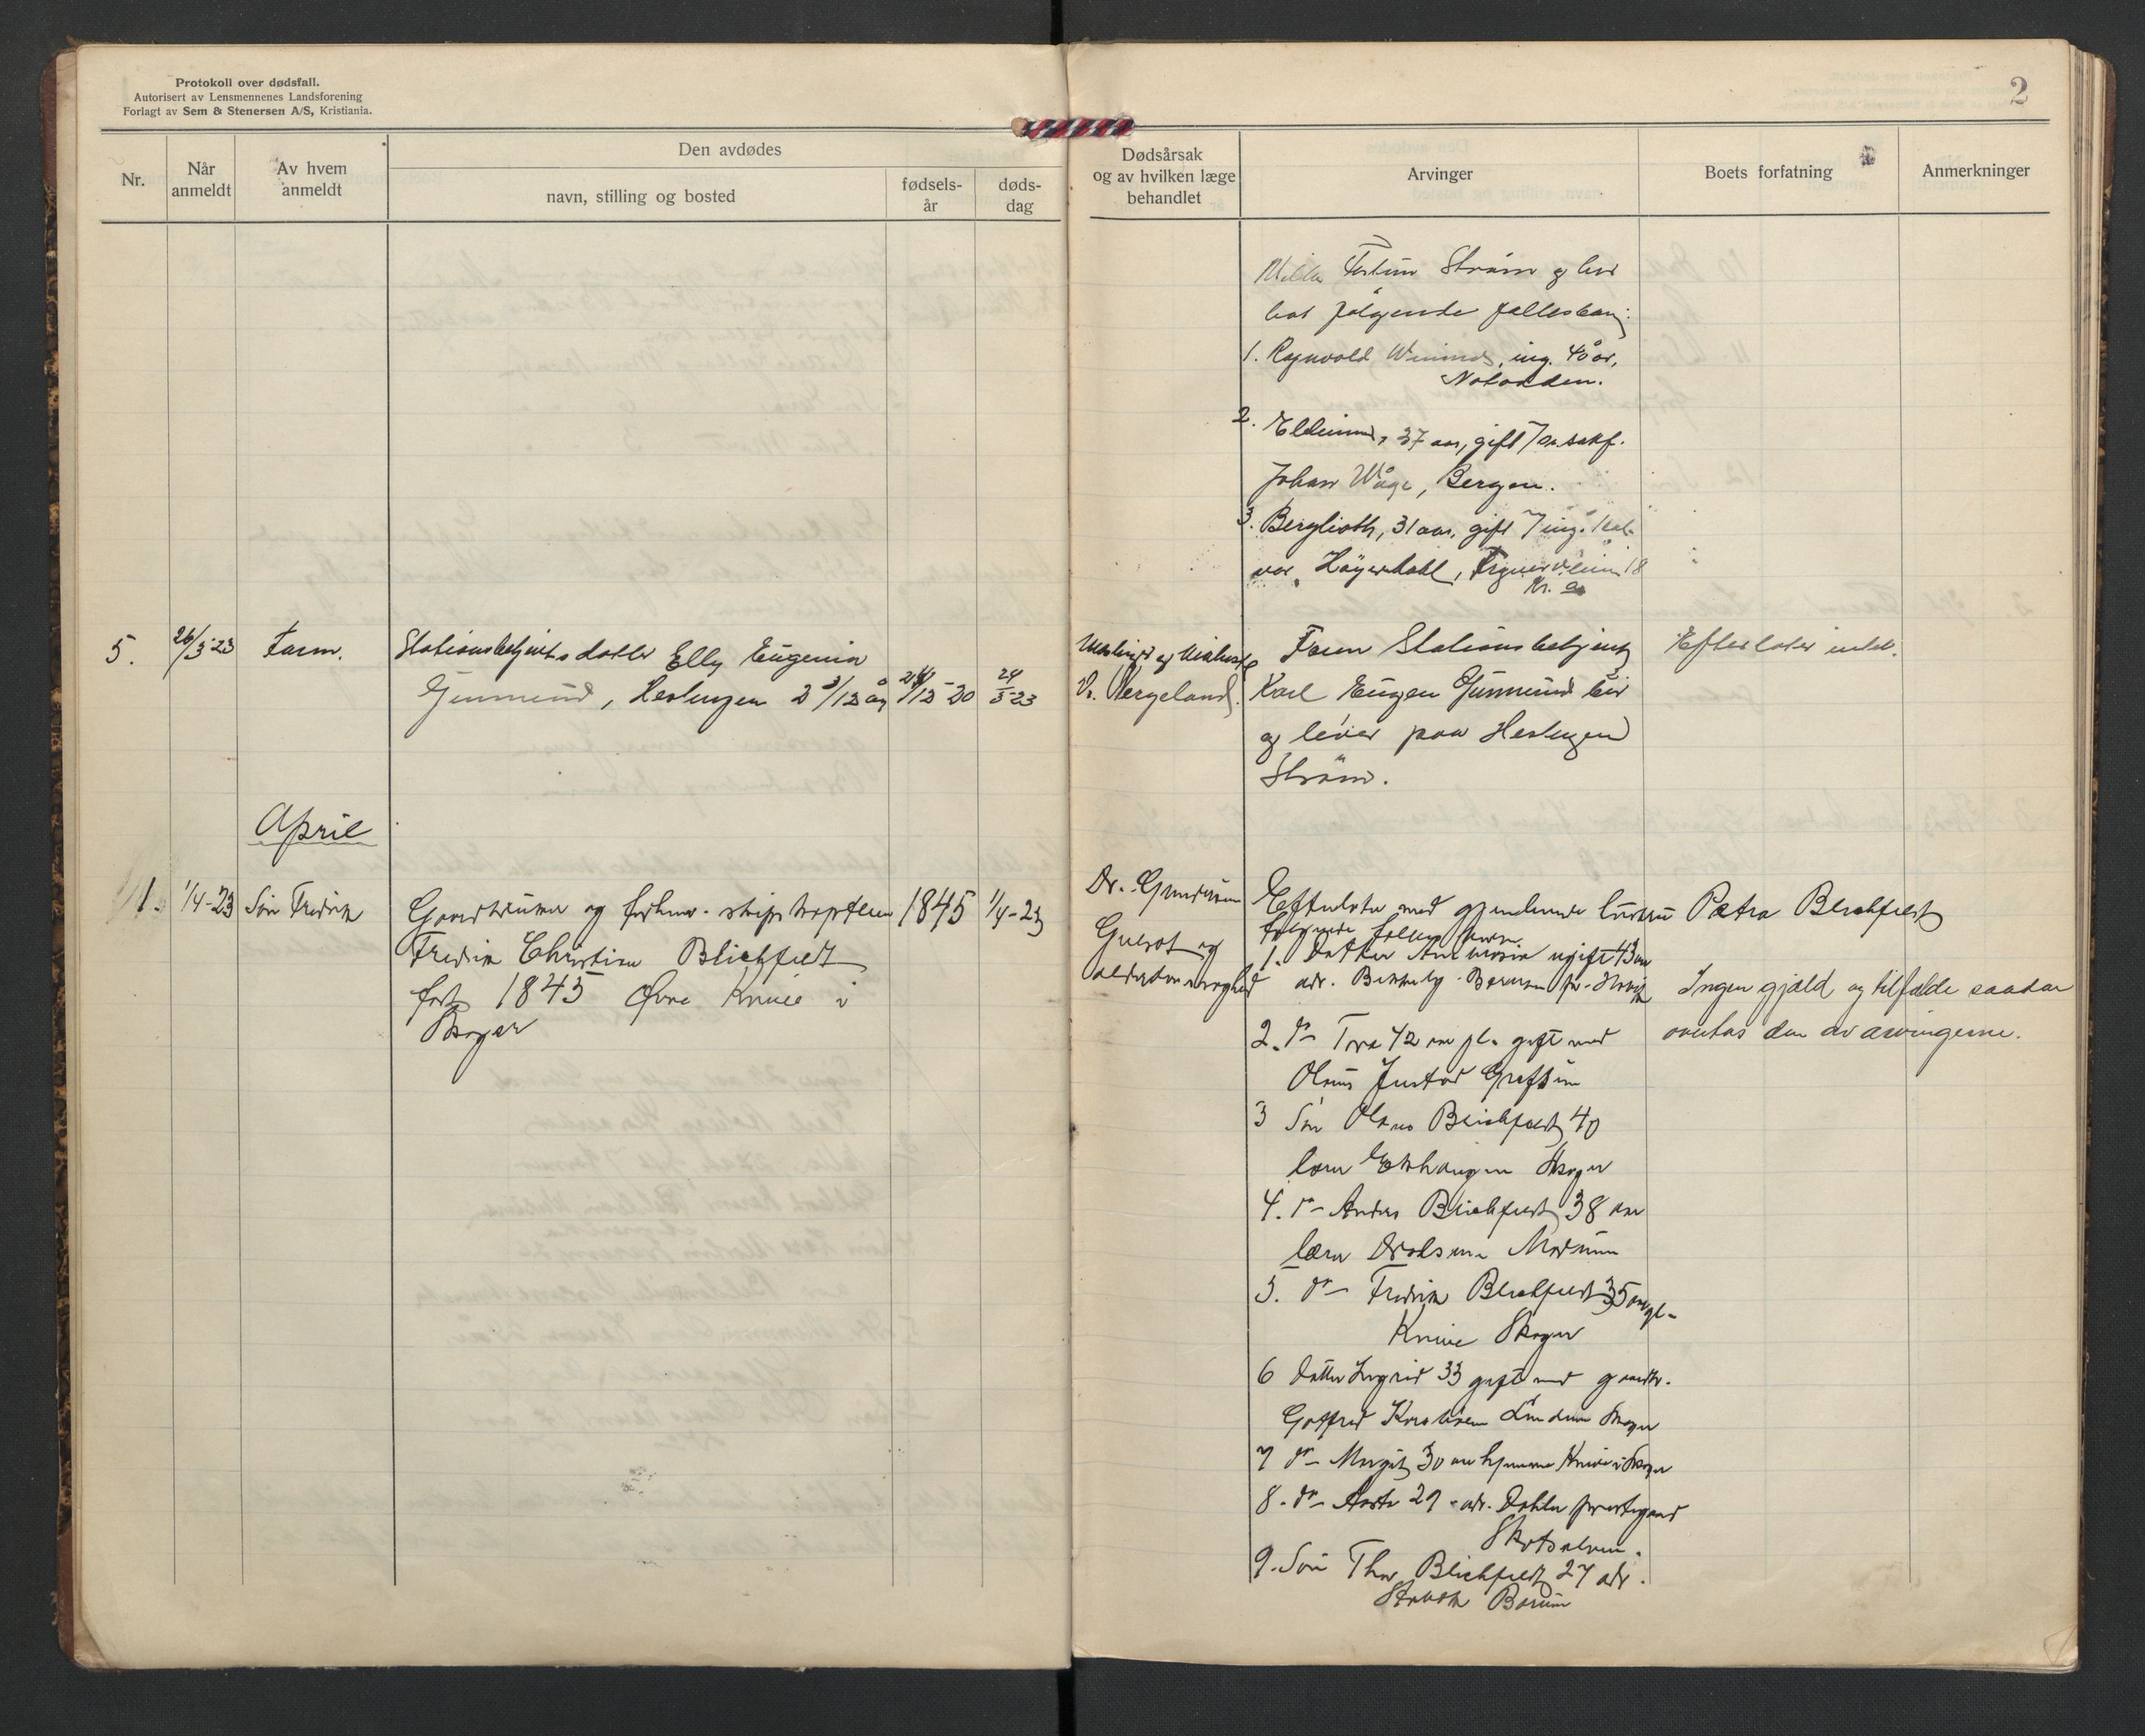 Protokoll over dødsfall.
Autorisert av Lensmennenes Landsforening
Forlagt av Sem & Stenersen A/S, Kristiania.
2
Nr.
Når anmeldt
Av hvem anmeldt
Den avdødes
navn, stilling og bosted
fødsels-år
døds-dag
Dødsårsak og av hvilken læge behandlet
Arvinger
Boets forfatning
Anmerkninger
Ström og hos
har følgende fellesbarn:
1. Ragnvald, ing. 40 år,
Notodden.
2. 37 aar, gift m/ sakf.
Johan Wåge, Bergen.
3. Berglioth, 31 aar, gift m/ ing. Hal-
vor Höyerdahl, 18
Kr. a
5.
26/3-23
Farm.
Stationsbetjents datter Elly Eugenia
Gunmund, Heslungen 2 3/12 år
12-20
24/3-23
Meslinger og
Dr. Wergeland.
Faren Stationsbetjent
Karl Eugen Gunmund bor
og lever paa Heslungen
Ström.
Efterlater intet.
April
1.
1/4-23
Sön Fredrik
Gaardbruker og forhenv. skipskaptein
Fredrik Christian Blichfeldt
født 1845 Øvre Knive i
Skoger
1845
1/4-23
Dr. Gundersen
og
alderdomssvaghed
Efterlater med gjenlevende hustru Petra Blichfeldt
følgende felles barn
1. Datter ugift 43 aar
adr. Bærum pr. Høvik
2. do Tora 42 aar gl. gift med
Olaus Justad Grefsrud
3 Sön Olaus Blichfeldt 40
lærer Skoger
4. do Anders Blichfeldt 38 aar
lærer Modum
5. do Fredrik Blichfeldt 35 aar gl.
Knive Skoger
6 Datter Ingrid 33 gift med gaardbr.
Gotfred Lindum Skoger
7 do Margit 30 aar hjemme Knive i Skoger
8. do Aasta 29 adr. Dahlen prestegaard
9. Sön Thor Blichfeldt 27 adr.
Bærum
Ingen gjæld og tilfælde saadan
overtas den av arvingerne.